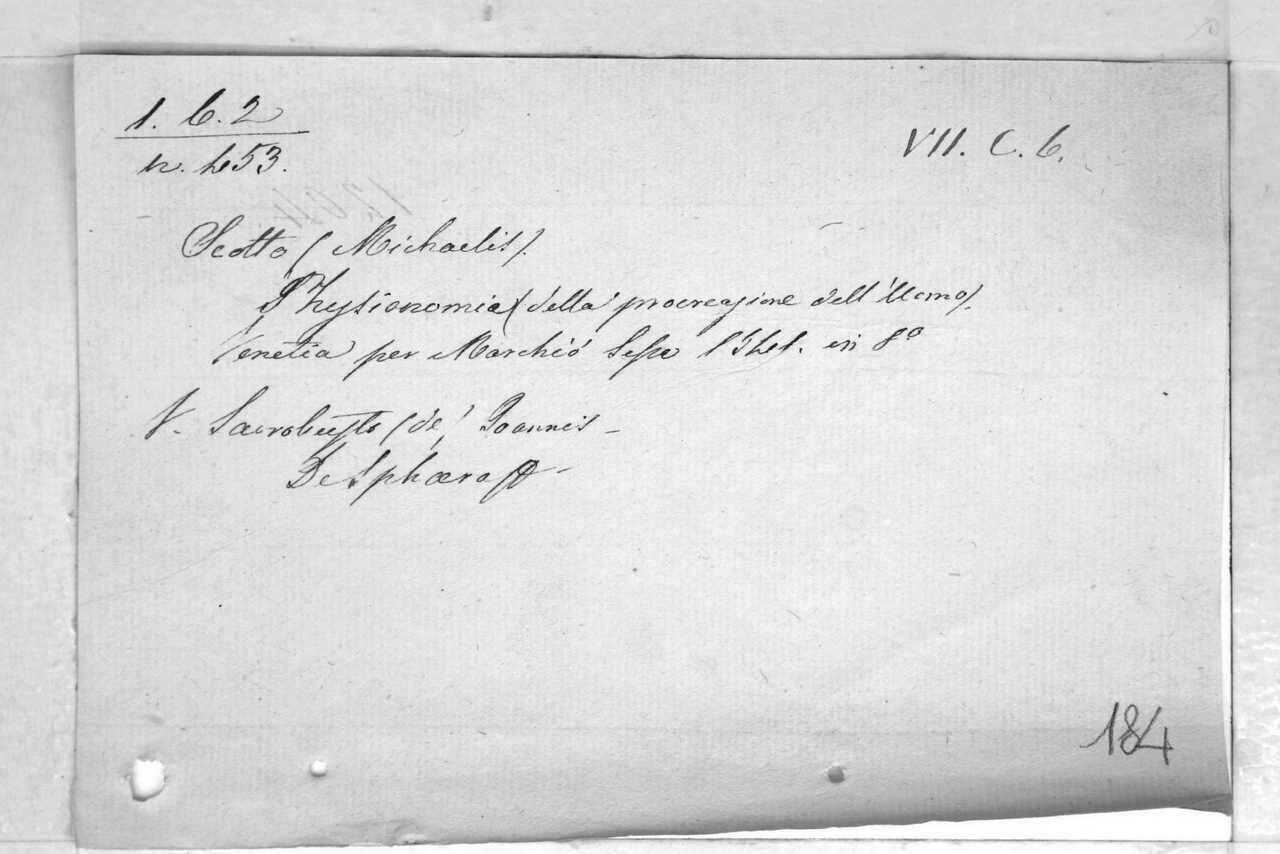 1. C. 2
VII. C. 6.
n. 453.
Scotto (Michaelis).
Physionomia (della procreazione dell' Uomo).
Venetia per Marchió Sessa in 8º
V. Sacrobusto (de) Joannis -
De Sphæra
184